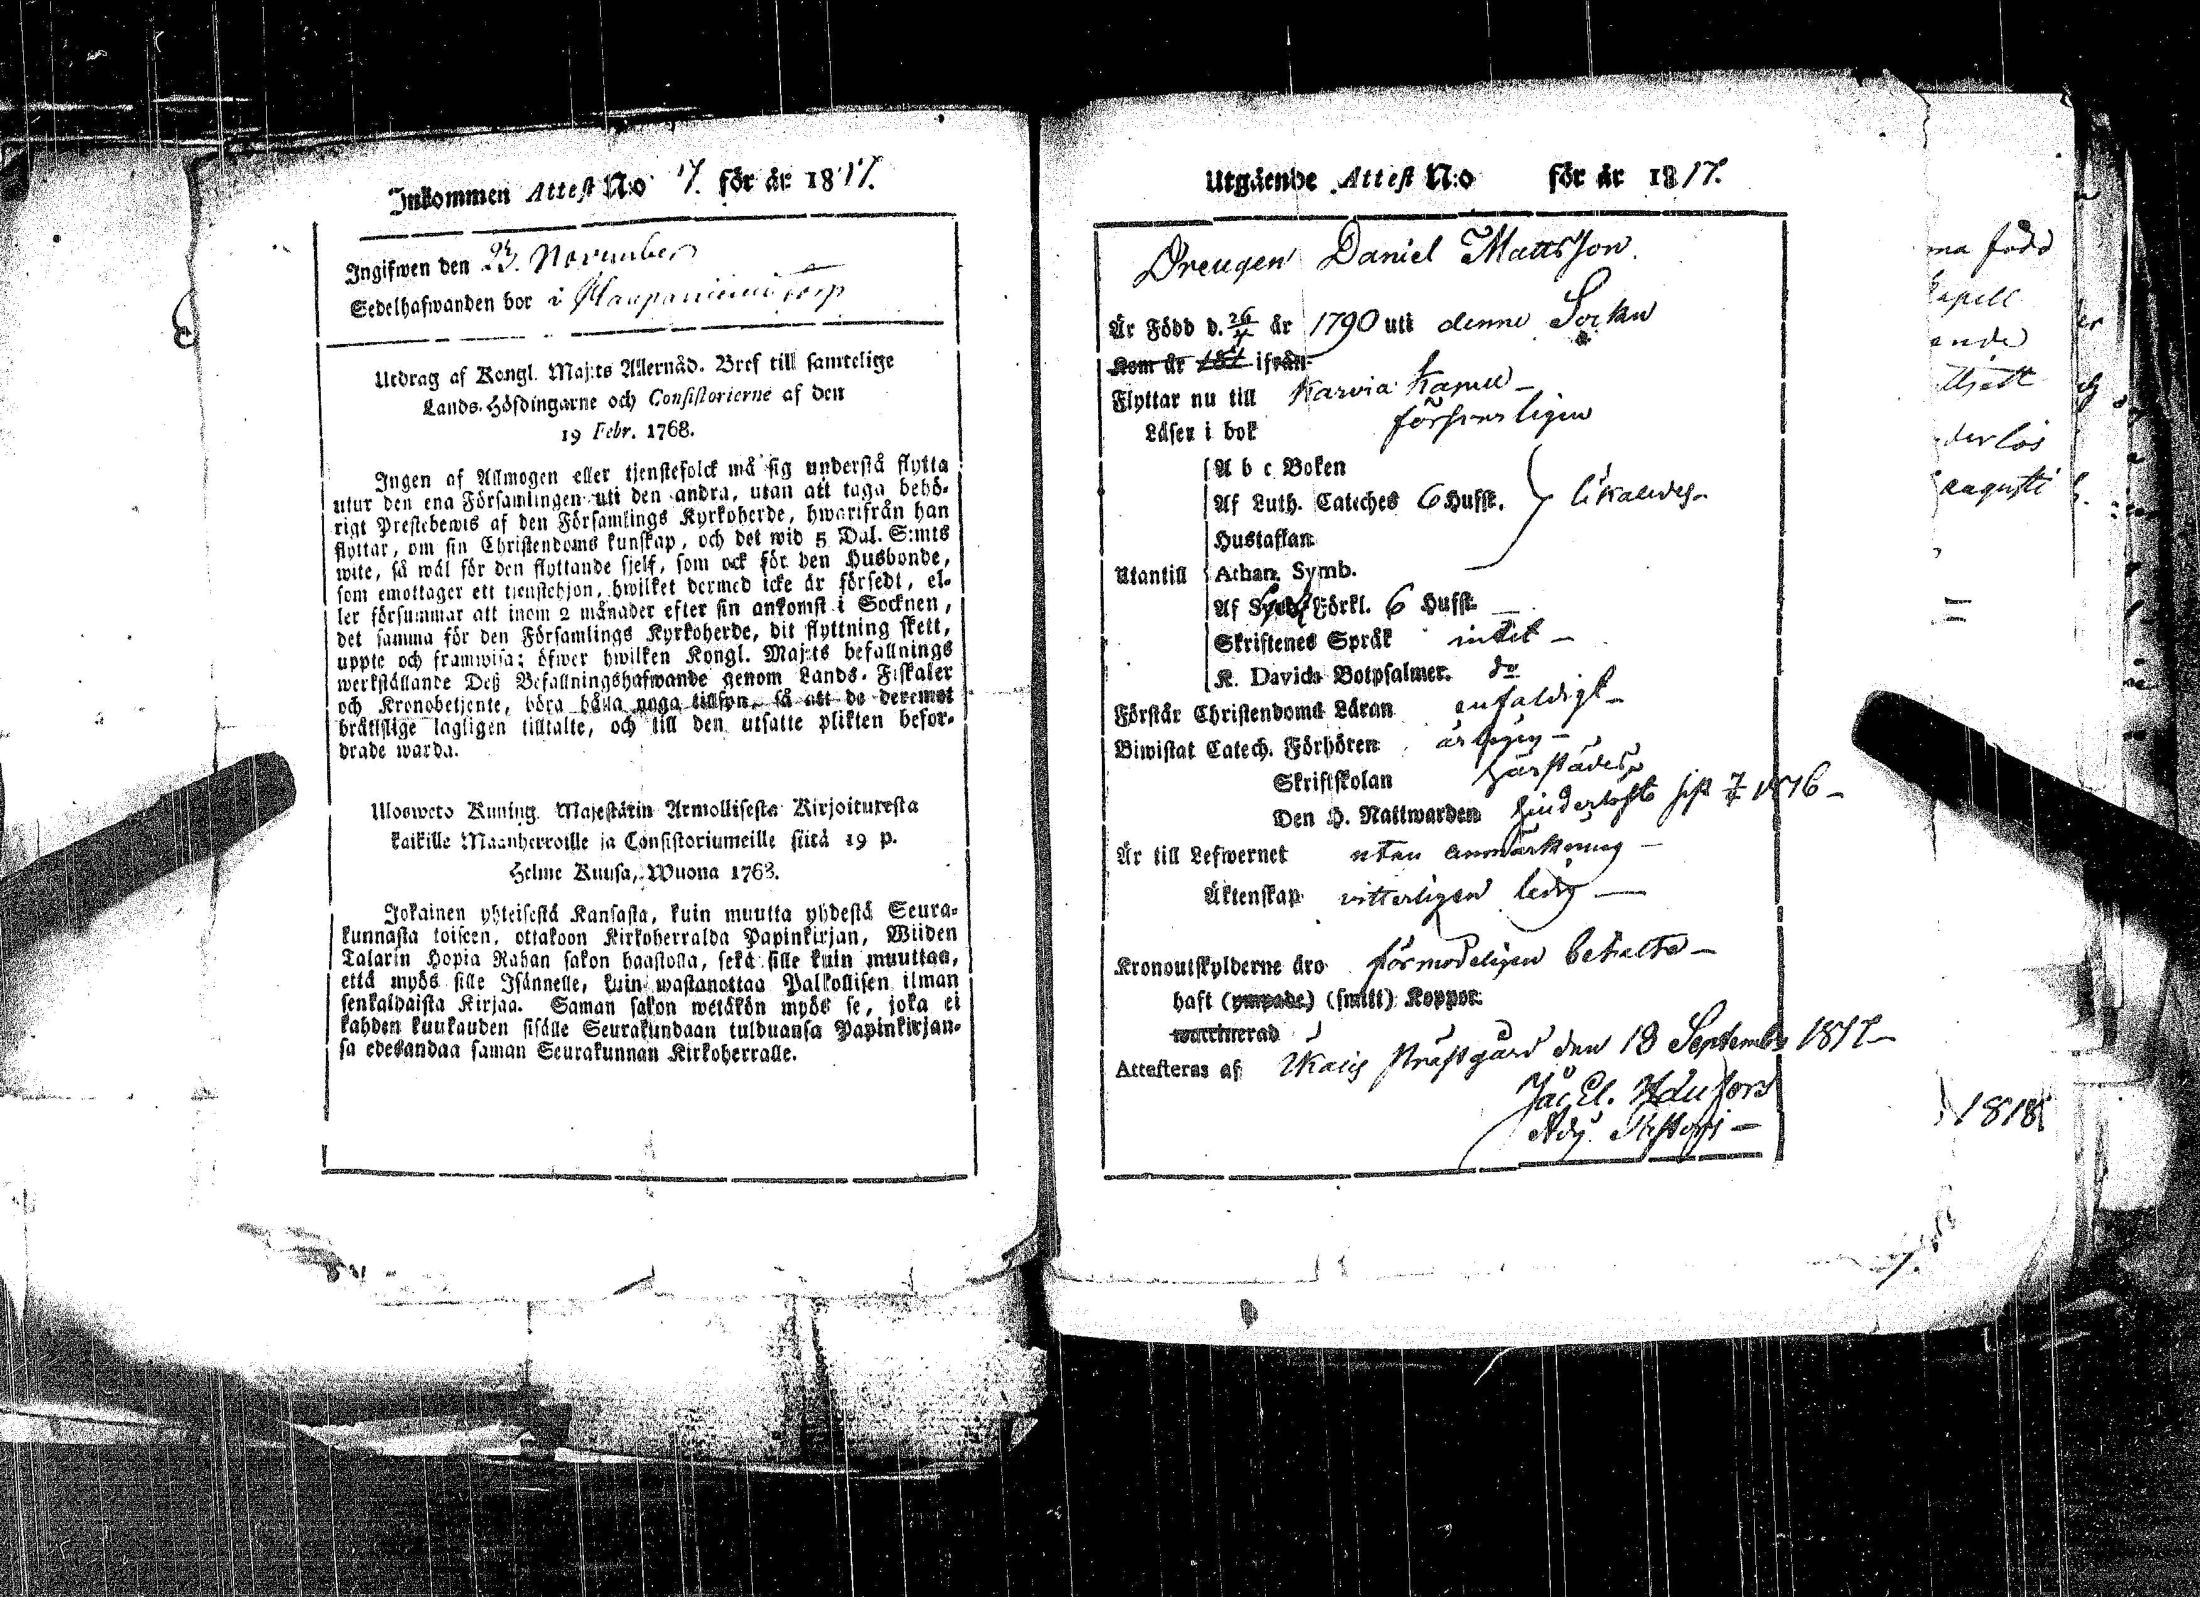 Inkommen Attest N:o 7. för år 1817.
Ingifwen den 23. November
Sedelhafwanden bor i torp
Utdrag af Kongl. Maj:ts Allernåd. Bref till samtelige
Lands-Höfdingarne och Consistorierne af den
19 Febr. 1768.
Ingen af Allmogen eller tjenstefolck må sig understå flytta
utur den ena Församlingen uti den andra, utan att taga behö-
rigt Prestebewis af den Församlings Kyrkoherde, hwarifrån han
flyttar, om sin Christendoms kunskap, och det wid 5 Dal. S:mts
wite, så wäl för den flyttande sjelf, som ock för den Husbonde,
som emottager ett tjenstehjon, hwilket dermed icke är försedt, el-
ler försummar att inom 2 månader efter sin ankomst i Socknen,
det samma för den Församlings Kyrkoherde, dit flyttning skett,
uppte och framwisa; öfwer hwilken Kongl. Maj:ts befallnings
werkställande Deß Befallningshafwande genom Lands-Fiskaler
och Kronobetjente, böra hålla noga tillsyn, så att de deremot
bråttslige lagligen tilltalte, och till den utsatte plikten befor-
drade warda.
Ulosweto Kuning. Majestätin Armollisesta Kirjoituresta
kaikille Maanherroille ja Consistoriumeille siitä 19 p.
Helme Kuusa, Wuona 1768.
Jokainen yhteisestä Kansasta, kuin muutta yhdestä Seura-
kunnasta toiseen, ottakoon Kirkoherralda Papinkirjan, Wiiden
Talarin Hopia Rahan sakon haastolla, sekä sille kuin muuttaa,
että myös sille Isännelle, kuin wastanottaa Palkollisen ilman
senkaldaista Kirjaa. Saman sakon wetäkön myös se, joka ei
kahden kuukauden sisälle Seurakundaan tulduansa Papinkirjan-
sa edesandaa saman Seurakunnan Kirkoherralle.
Utgående Attest N:o för år 1817.
Drengen Daniel Mattsson.
Är Född d. 26/4 år 1790 uti denne Sockn
Kom år 181 ifrån
Flyttar nu till Karvia Kapell –
Läser i bok försvarligen
A b c Boken
Af Luth. Cateches 6 Hufst. likaledes
Hustaflan
Utantill Athan. Symb.
Af Förkl. 6 Hufst. –
Skriftenes Språk intet –
K. Davids Botpsalmer. do
Förstår Christendoms Läran enfaldigt –
Biwistat Catech. Förhören årligen –
Skriftskolan härstädes
Den H. Nattwarden sist 1816 –
Är till Lefwernet utan anmärkning –
Äktenskap vitterligen ledig –
Kronoutskylderne äro förmodeligen betalte –
haft (ympade) (smitt) Koppor.
waccinerad
Attesteras af Ikalis Prästgård den 18 September 1817 –
Jac. El.
Adj. Pastoris –
na född
Kapell
ande
augusti
1818